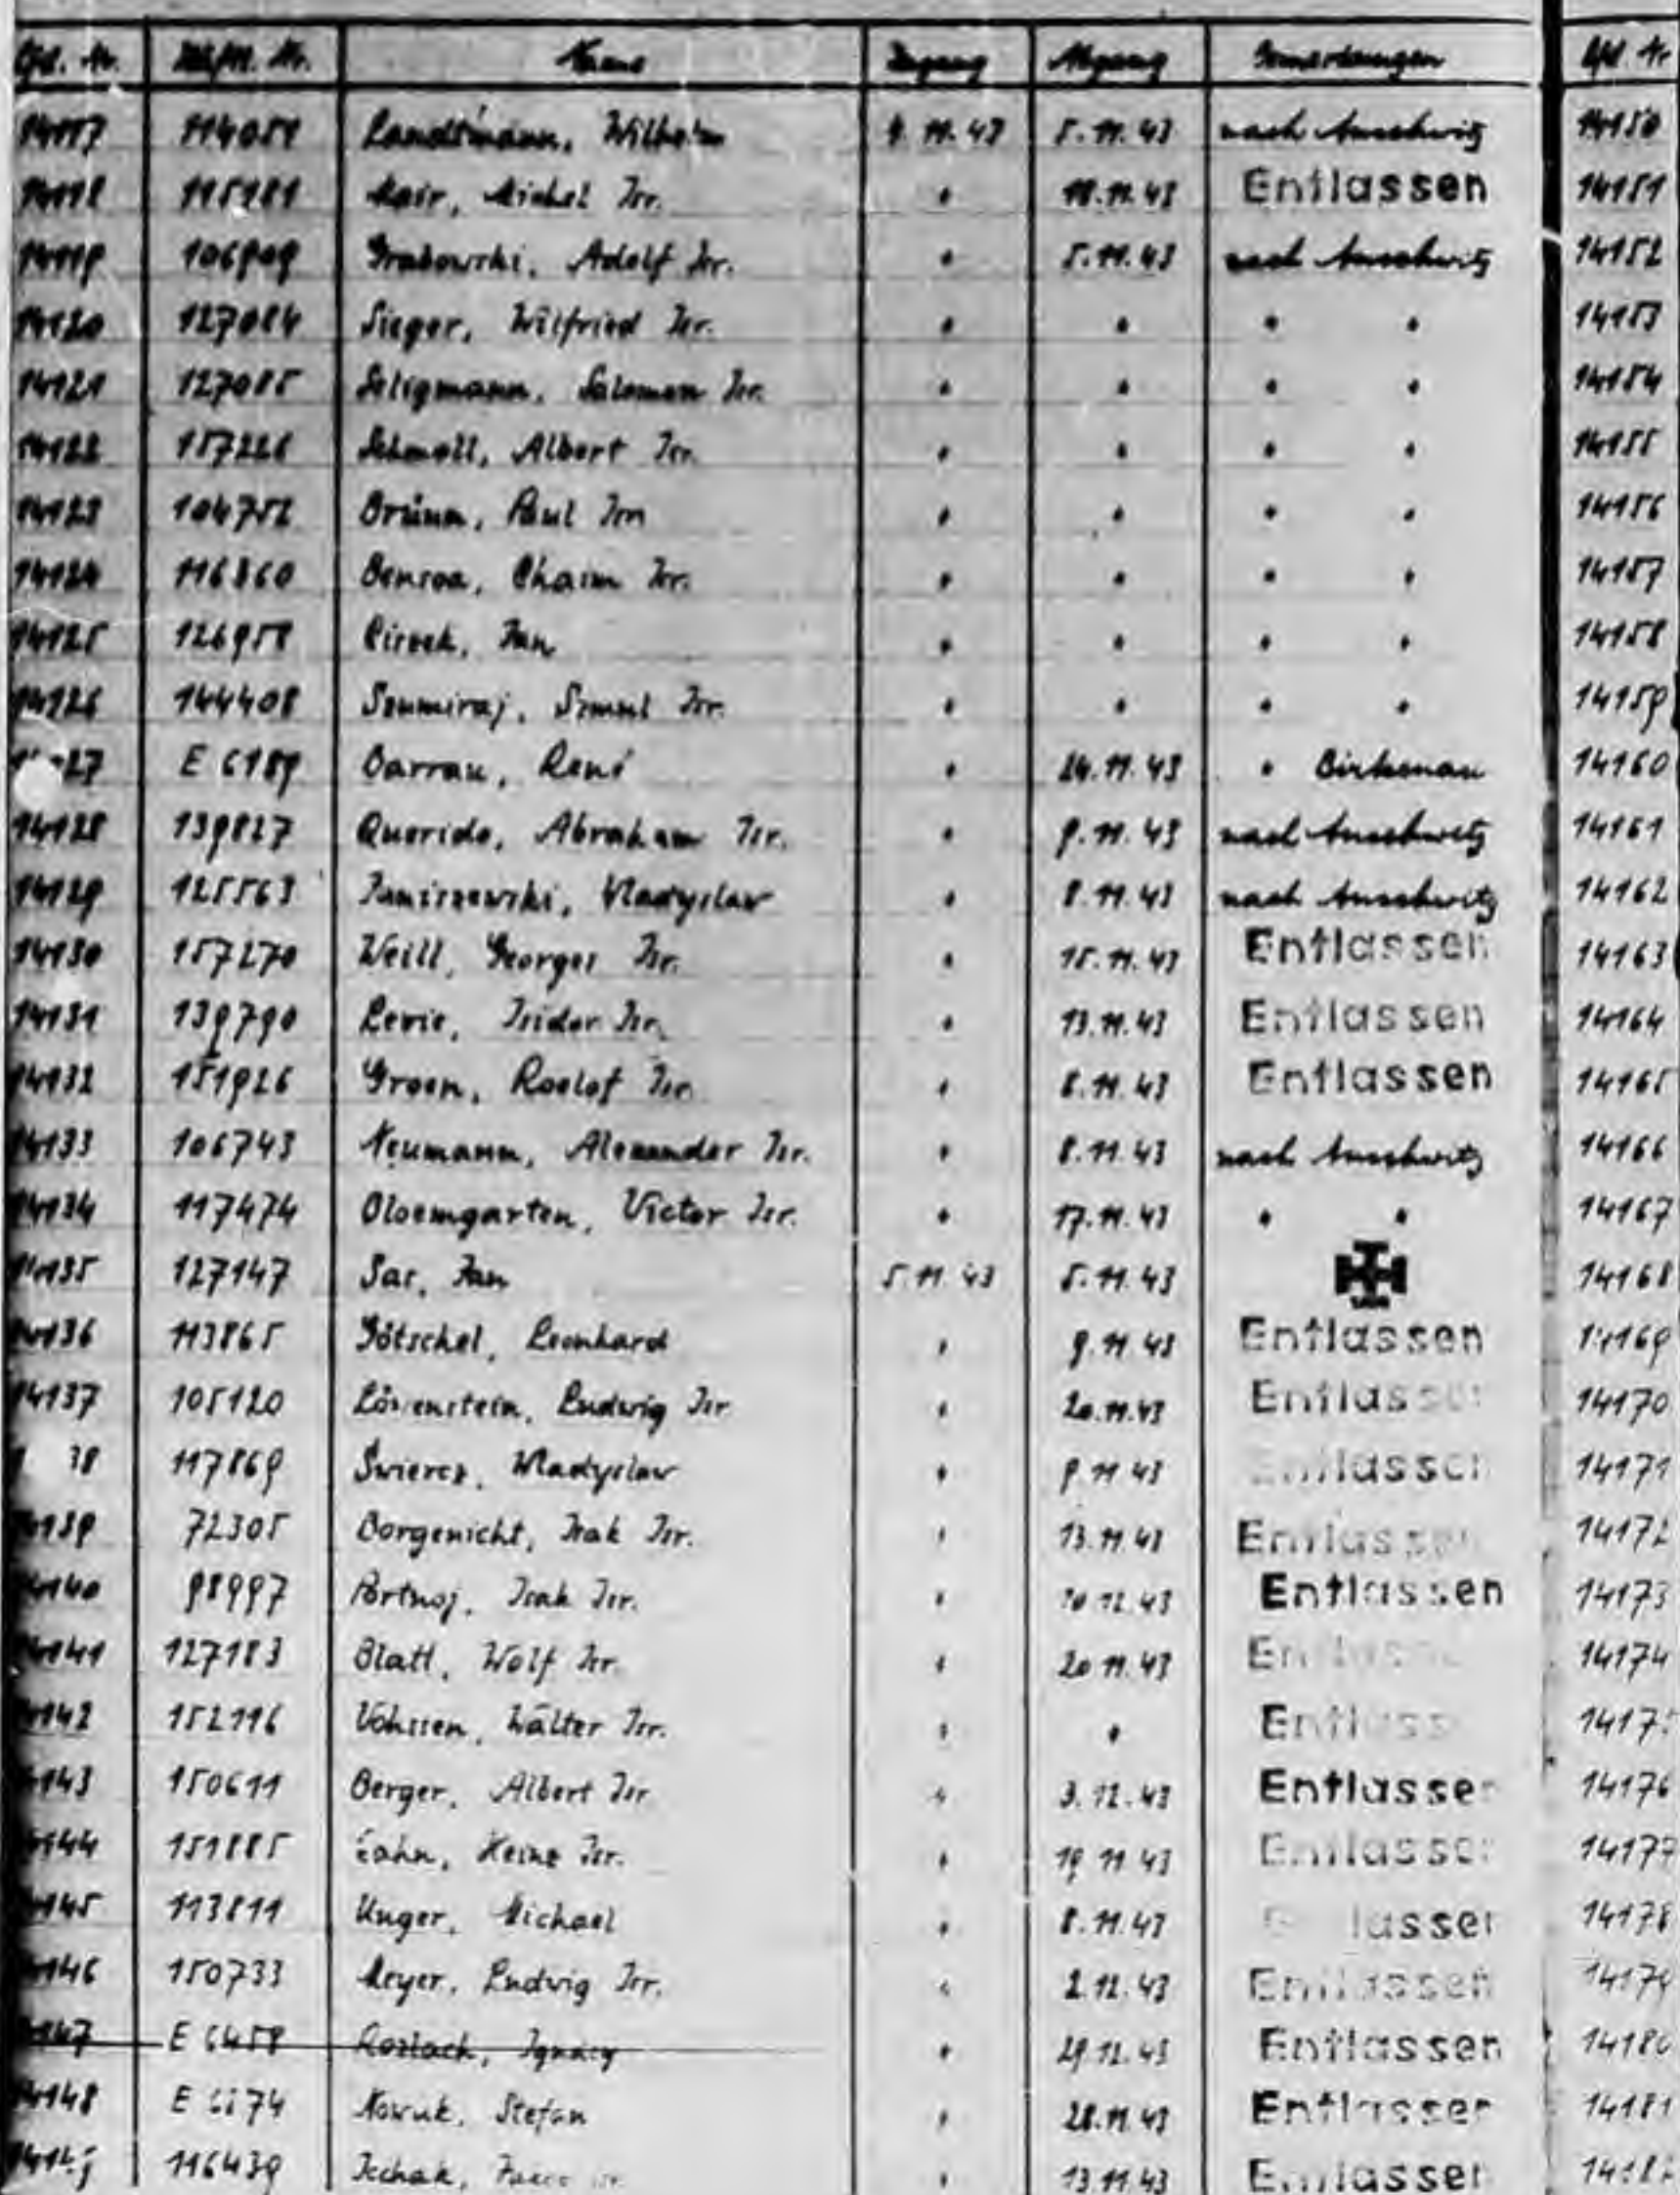 Lfd. Nr. Häftl. Nr. Name Zugang Abgang Bemerkungen Lfd. Nr
14117 114051 Landtmann, Wilhelm 4.11.43 5.11.43 nach Auschwitz 14150
14118 115181 Mair, Michel Isr. " 18.11.43 Entlassen 14151
14119 106909 Grabowski, Adolf Isr. " 5.11.43 nach Auschwitz 14152
14120 127084 Sieger, Wilfried Isr. " " " " 14153
14121 127085 Seligmann, Salomon Isr. " " " " 14154
14122 157226 Schmoll, Albert Isr. " " " " 14155
14123 104752 Brünn, Paul Isr. " " " " 14156
14124 116360 Benroa, Chaim Isr. " " " " 14157
14125 126958 Cirock, Jan " " " " 14158
14126 144408 Szumiraj, Szmul Isr. " " " " 14159
27 E 6189 Barrau, René " 24.11.43 " Birkenau 14160
14128 139827 Querido, Abraham Isr. " 9.11.43 nach Auschwitz 14161
14129 125563 Janiszewski, Wladyslaw " 8.11.43 nach Auschwitz 14162
14130 157270 Weill, Georges Isr. " 15.11.43 Entlassen 14163
14131 139790 Levie, Isidor Isr. " 13.11.43 Entlassen 14164
14132 151926 Groen, Roelof Isr. " 8.11.43 Entlassen 14165
14133 106743 Neumann, Alexander Isr. " 8.11.43 nach Auschwitz 14166
14134 117474 Bloemgarten, Victor Isr. " 17.11.43 " " 14167
14135 127147 Sar, Jan 5.11.43 5.11.43 14168
14136 113865 Götschel, Leonhard " 9.11.43 Entlassen 14169
14137 105120 Löwenstein, Ludwig Isr " 20.11.43 Entlassen 14170
38 117869 Świercz, Wladyslaw " 9.11.43 Entlassen 14171
14139 72305 Borgenicht, Isak Isr. " 13.11.43 Entlassen 14172
14140 98997 Portnoj, Isak Isr. " 10.12.43 Entlassen 14173
14141 127183 Blatt, Wolf Isr. " 20.11.43 Entlassen 14174
14142 152116 Vohssen, Walter Isr. " " Entlassen 1417
14143 150611 Berger, Albert Isr " 3.12.43 Entlassen 14176
14144 151885 Cahn, Heinz Isr. " 19.11.43 Entlassen 14177
14145 113811 Unger, Michael " 8.11.43 Entlassen 14178
14146 150733 Meyer, Ludwig Isr. " 2.12.43 Entlassen 14179
14147 E 6458 Kozlack, Ignacy " 29.12.43 Entlassen 14180
14148 E 6174 Nowak, Stefan " 28.11.43 Entlassen 14181
1414 116439 Ischak, " 13.11.43 Entlassen 1418